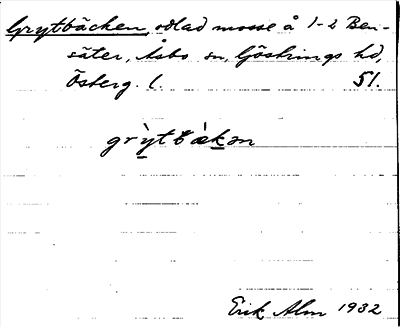 Grytbäcken, odlad mosse å 1-2 Ben-
säter, Åsbo sn, Göstrings hd,
Österg. l. 51.
grỳtbàkən
Erik Alm 1932